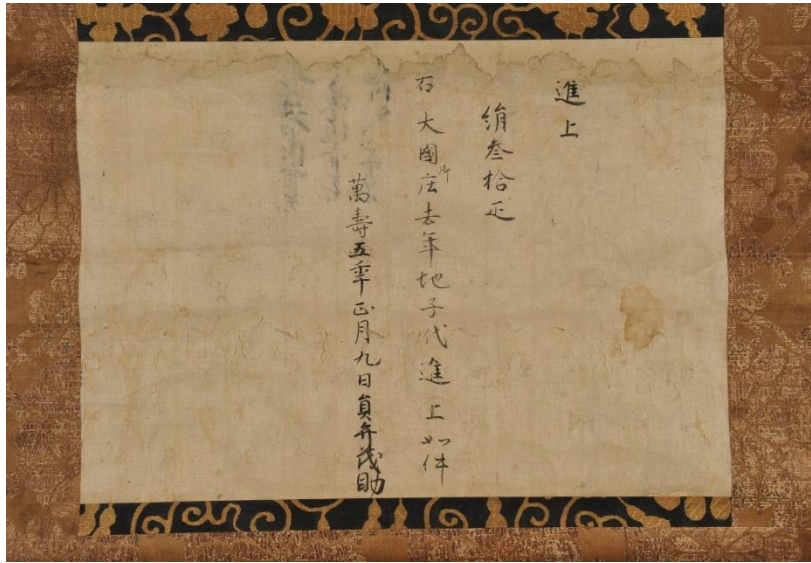 進上
絹叁拾疋
右大國庄所去年地子代進上如件
萬壽五年正月九日員弁茂助